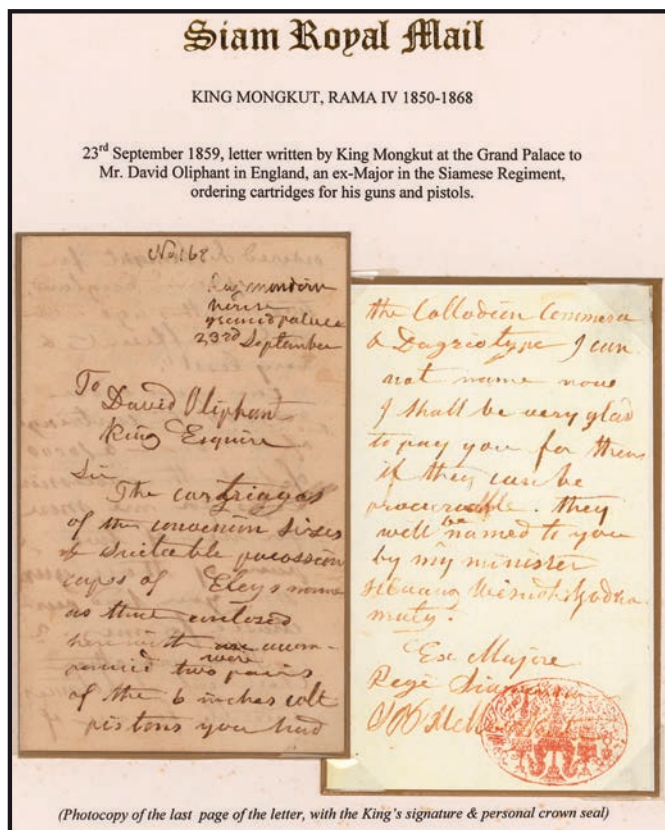 Siam Royal Mail
KING MONGKUT, RAMA IV 1850-1868
23rd September 1859, letter written by King Mongkut at the Grand Palace to
Mr. David Oliphant in England, an ex-Major in the Siamese Regiment,
ordering cartridges for his guns and pistols.
No 168
palace
23rd September
To
David Oliphant
King Esquire
Sir
The
of the sizes
& suitable
caps of Eleys name
as that enclosed
herewith
were
two pairs
of the 6 inches colt
you had
the Collodien
& I can
not name now
I shall be very glad
to pay you for them
if they can be
they
be
well named to you
by my minister
Ex Majore
Rege
(Photocopy of the last page of the letter, with the King's signature & personal crown seal)